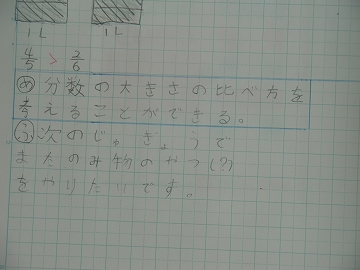 1L 1L
4/5 > 2/6
め 分数の大きさの比べ方を
考えることができる。
ふ 次のじゅぎょうで
またのみ物のやつ(?)
をやりたいです。